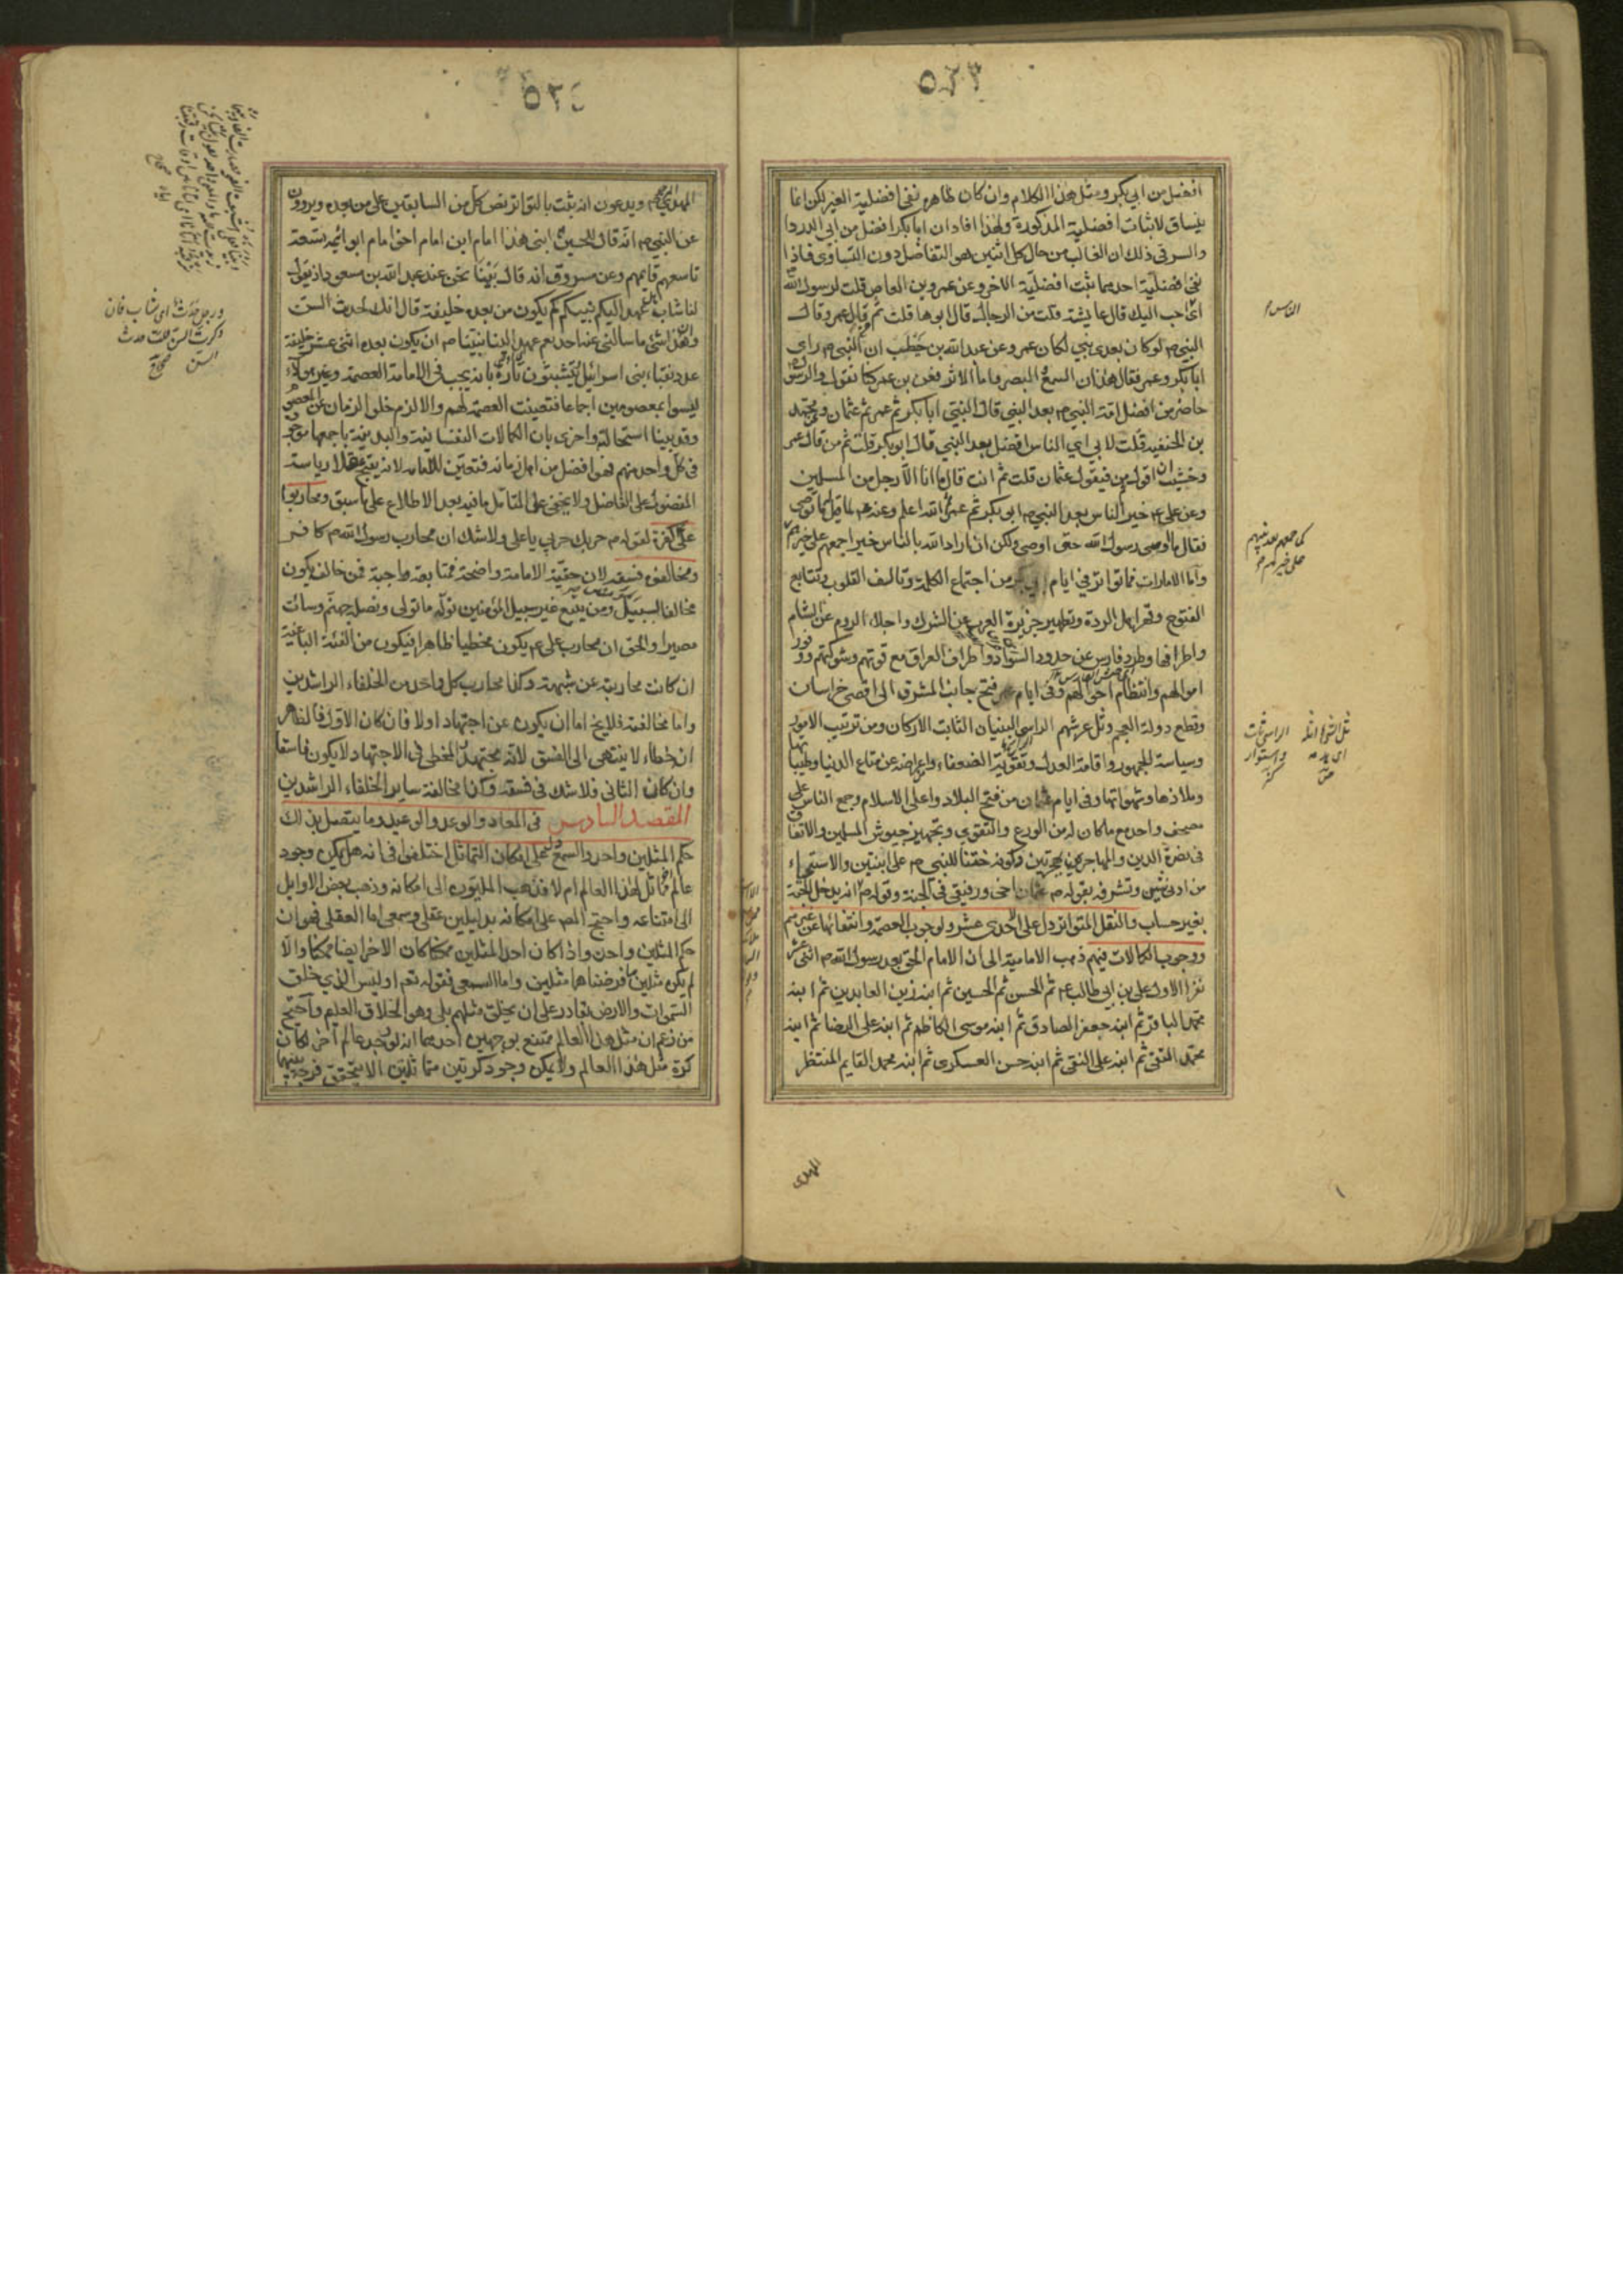 ٥٣٣
افضل من ابي بكر ومثل هذا الكلام وان كان ظاهره نفى افضلية الغير لكن انما
ينساق لاثبات افضلية المذكورة ولهذا افاد ان ابا بكر افضل من ابي الدردا
والسر في ذلك ان الغالب من حال كل اثنين هو التفاضل دون التساوى فاذا
نفى افضلية احدهما ثبت افضلية الاخر وعن عمرو بن العاص قلت لرسول الله
اى احب اليك قال عايشة قلت من الرجال قال ابوها قلت ثم قال عمر وقال
النبي ص لو كان بعدى نبي لكان عمر وعن عبد الله بن حنطب ان النبي ص راى
ابا بكر وعمر فقال هذان السمع والبصر واما الاثر فعن بن عمر كنا نقول والرسول
حاضر من افضل امة النبي ص بعد النبي قال النبي ابا بكر ثم عمر ثم عثمان وعن محمد
بن الحنفية قلت لابي اي الناس افضل بعد النبي قال ابو بكر قلت ثم من قال عمر
وخشيت ان اقول من فيقول عثمان قلت ثم انت قال ما انا الا رجل من المسلمين
وعن على عم خير الناس بعد النبي ص ابو بكر ثم عمر ثم الله اعلم وعنه عم لما قيل له ما توصى
فقال ما اوصى رسول الله حتى اوصى ولكن ان اراد الله بالناس خيرا جمعهم على خيرهم
واما الامارات فما تواتر في ايام ابي بكر من اجتماع الكلمة وتاليف القلوب وتتابع
الفتوح وقهر اهل الردة وتطهير جزيرة العرب عن الشرك واجلاء الروم عن الشام
واطرافها وطرد فارس عن حدود السواد واطراف العراق مع قوتهم وشوكتهم ووفور
اموالهم وانتظام احوالهم وفى ايام عمر فتح جانب المشرق الى اقصى خراسان
وقطع دولة العجم وثل عرشهم الراسي البنيان الثابت الاركان ومن ترتيب الامور
وسياسة الجمهور واقامة العدل وتقوية الضعفاء واعراضه عن متاع الدنيا وطيباتها
وملاذها وشهواتها وفى ايام عثمان من فتح البلاد واعلى الاسلام وجمع الناس على
مصحف واحد مع ما كان له من الورع والتقوى وتجهيز جيوش المسلمين والانفاق
فى نصرة الدين والمهاجر هجرتين وكونه ختنا للنبي ص على ابنتين والاستحياء
من ادنى شين وتشرفه بقوله ص عثمان اخى ورفيقى فى الجنة وقوله ص انه يدخل الجنة
بغير حساب والنقل المتواتر دل على الاحدى عشر ولوجوب العصمة وانتفائها عن غيرهم
ووجوب الكمالات فيهم ذهب الامامية الى ان الامام الحق بعد رسول الله ص اثنى عشر
نفرا الاول على بن ابي طالب عم ثم الحسن ثم الحسين ثم ابنه زين العابدين ثم ابنه
محمد الباقر ثم ابنه جعفر الصادق ثم ابنه موسى الكاظم ثم ابنه على الرضا ثم ابنه
محمد التقى ثم ابنه على النقى ثم ابنه حسن العسكرى ثم ابنه محمد القايم المنتظر
المهدى
٥٣٤
المهدي ويدعون انه ثبت بالتواتر نص كل من السابقين على من بعده ويروون
عن النبي ص انه قال للحسين ابنى هذا امام ابن امام اخى امام ابو ائمة تسعة
تاسعهم قايمهم وعن مسروق انه قال بينا نحن عند عبد الله بن مسعود اذ يقول
لنا شاب عهد اليكم نبيكم كم يكون من بعده خليفة قال انك لحديث السن
وان هذا شئ ما سالنى عنه احد نعم عهد الينا نبينا ص ان يكون بعده اثنى عشر خليفة
عدد نقباء بنى اسرائيل ويتشبثون تارة بانه يجب في الامامة العصمة وغير هؤلاء
ليسوا بمعصومين اجماعا فتعينت العصمة لهم والا لزم خلو الزمان عن المعصوم
وقد بينا استحالته واخرى بان الكمالات النفسانية والبدنية باجمعها موجودة
فى كل واحد منهم فهو افضل من اهل زمانه فتعين للامامة لانه يقبح عقلا رياسة
المفضول على الفاضل ولا يخفى على المتامل ما فيه بعد الاطلاع على ما سبق ومحاربوا
على كفرة لقوله ص حربك حربي يا على ولا شك ان محارب رسول الله ص كافر
ومخالفوه فسقه لان حقية الامامة واضحة فمتابعته واجبة فمن خالفه يكون
مخالفا لسبيل ومن يتبع غير سبيل المؤمنين نوله ما تولى ونصله جهنم وسائت
مصيرا والحق ان محارب على عم يكون مخطيا ظاهرا فيكون من الفئة الباغية
ان كانت محاربته عن شبهة وكذا محارب كل واحد من الخلفاء الراشدين
واما مخالفته فلا يخ اما ان يكون عن اجتهاد اولا فان كان الاول فالظاهر
ان خطاءه لا ينتهى الى الفسق لانه مجتهد والمخطى في الاجتهاد لا يكون فاسقا
وان كان الثانى فلا شك فى فسقه وكذا مخالفة ساير الخلفاء الراشدين
المقصد السادس فى المعاد والوعد والوعيد وما يتصل بذلك
حكم المثلين واحد والسمع دل على امكان التماثل اختلفوا فى انه هل يمكن وجود
عالم مماثل لهذا العالم ام لا فذهب المليون الى امكانه وذهب بعض الاوايل
الى امتناعه واحتج المص على امكانه بدليلين عقلى وسمعى اما العقلى فهو ان
حكم المثلين واحد واذا كان احد المثلين ممكنا كان الاخر ايضا ممكنا والا
لم يكن مثلين ما فرضناهما مثلين واما السمعى فقوله تعم اوليس الذي خلق
السموات والارض بقادر على ان يخلق مثلهم بلى وهو الخلاق العليم واحتج
من زعم ان مثل هذا العالم ممتنع بوجهين احدهما انه لو وجد عالم آخر لكان
كرة مثل هذا العالم ولا يمكن وجود كرتين متماثلتين الا بتحقق فرجة بينهما